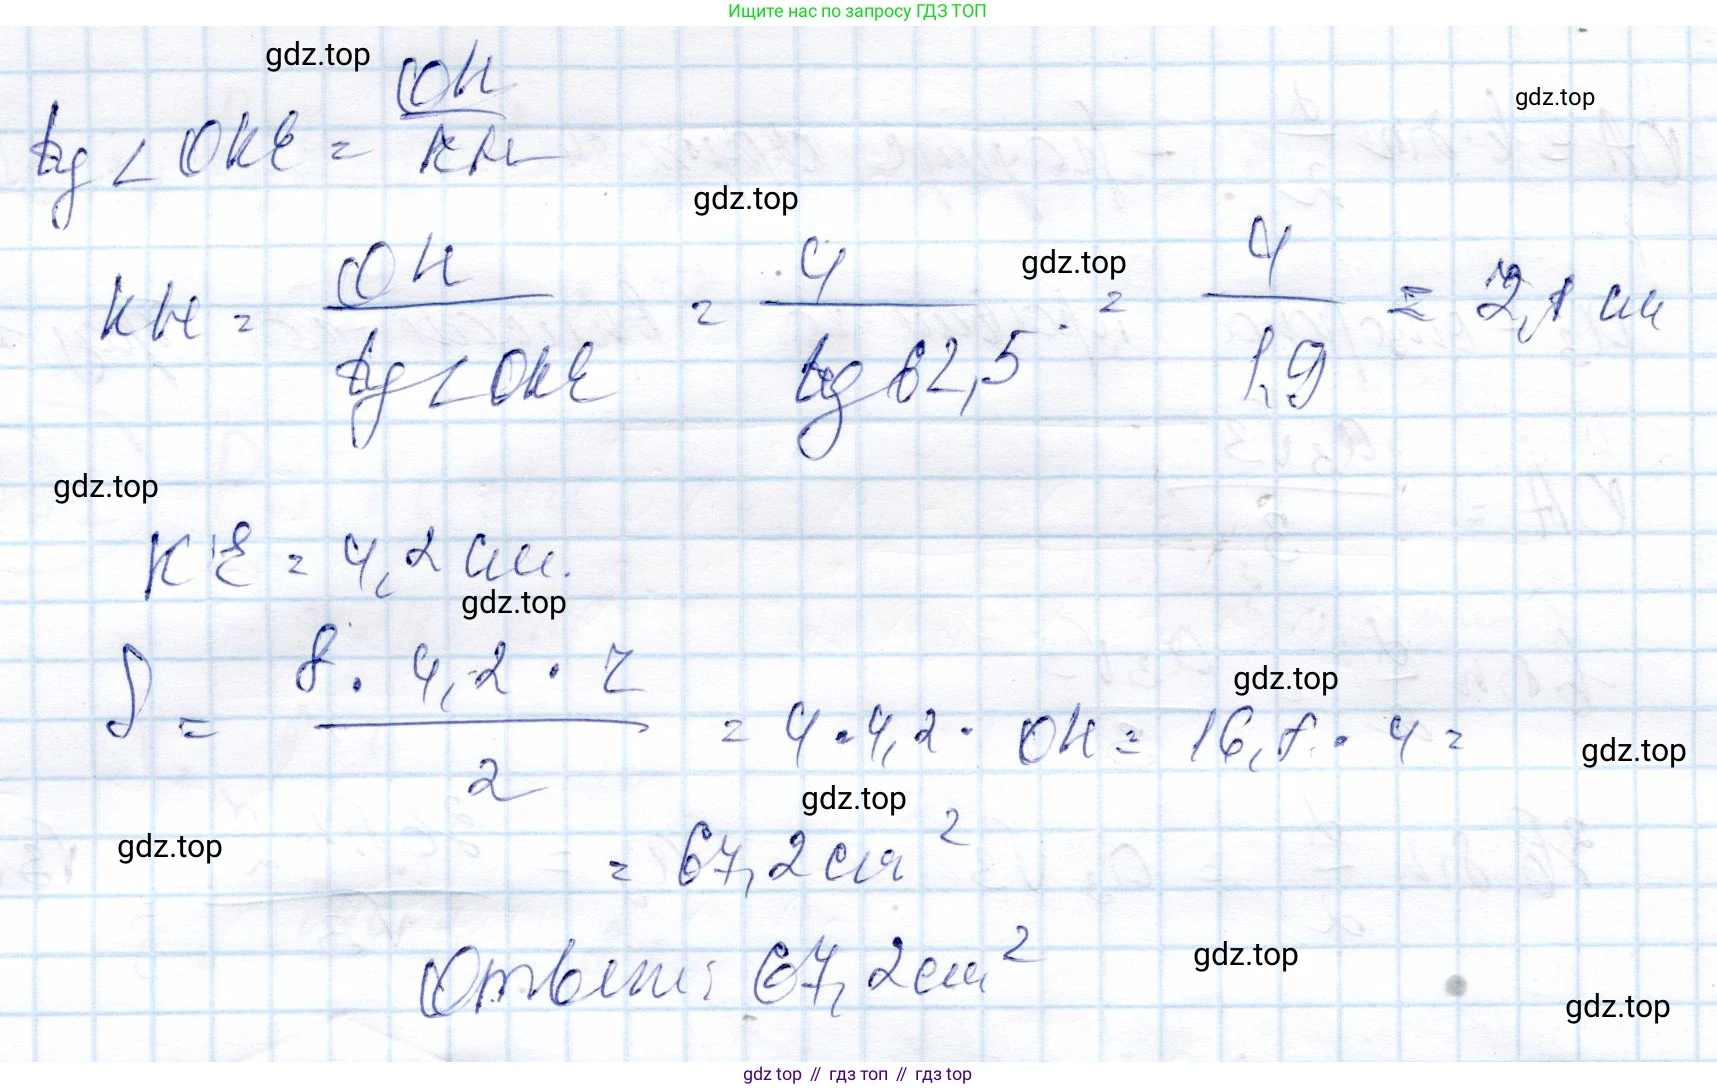 Ищите нас по запросу ГДЗ ТОП
gdz.top
gdz.top
tg ∠ OKE = OH / KH
gdz.top
gdz.top
KH = OH / tg ∠ OKE = 4 / tg 62,5 = 4 / 1,9 = 2,1 см
gdz.top
KE = 4,2 см.
gdz.top
S = 8 · 4,2 · r / 2 = 4 · 4,2 · OH = 16,8 · 4 =
gdz.top
gdz.top
gdz.top
gdz.top
= 67,2 см²
Ответ: 67,2 см²
gdz.top
gdz.top
gdz top // гдз топ // гдз top